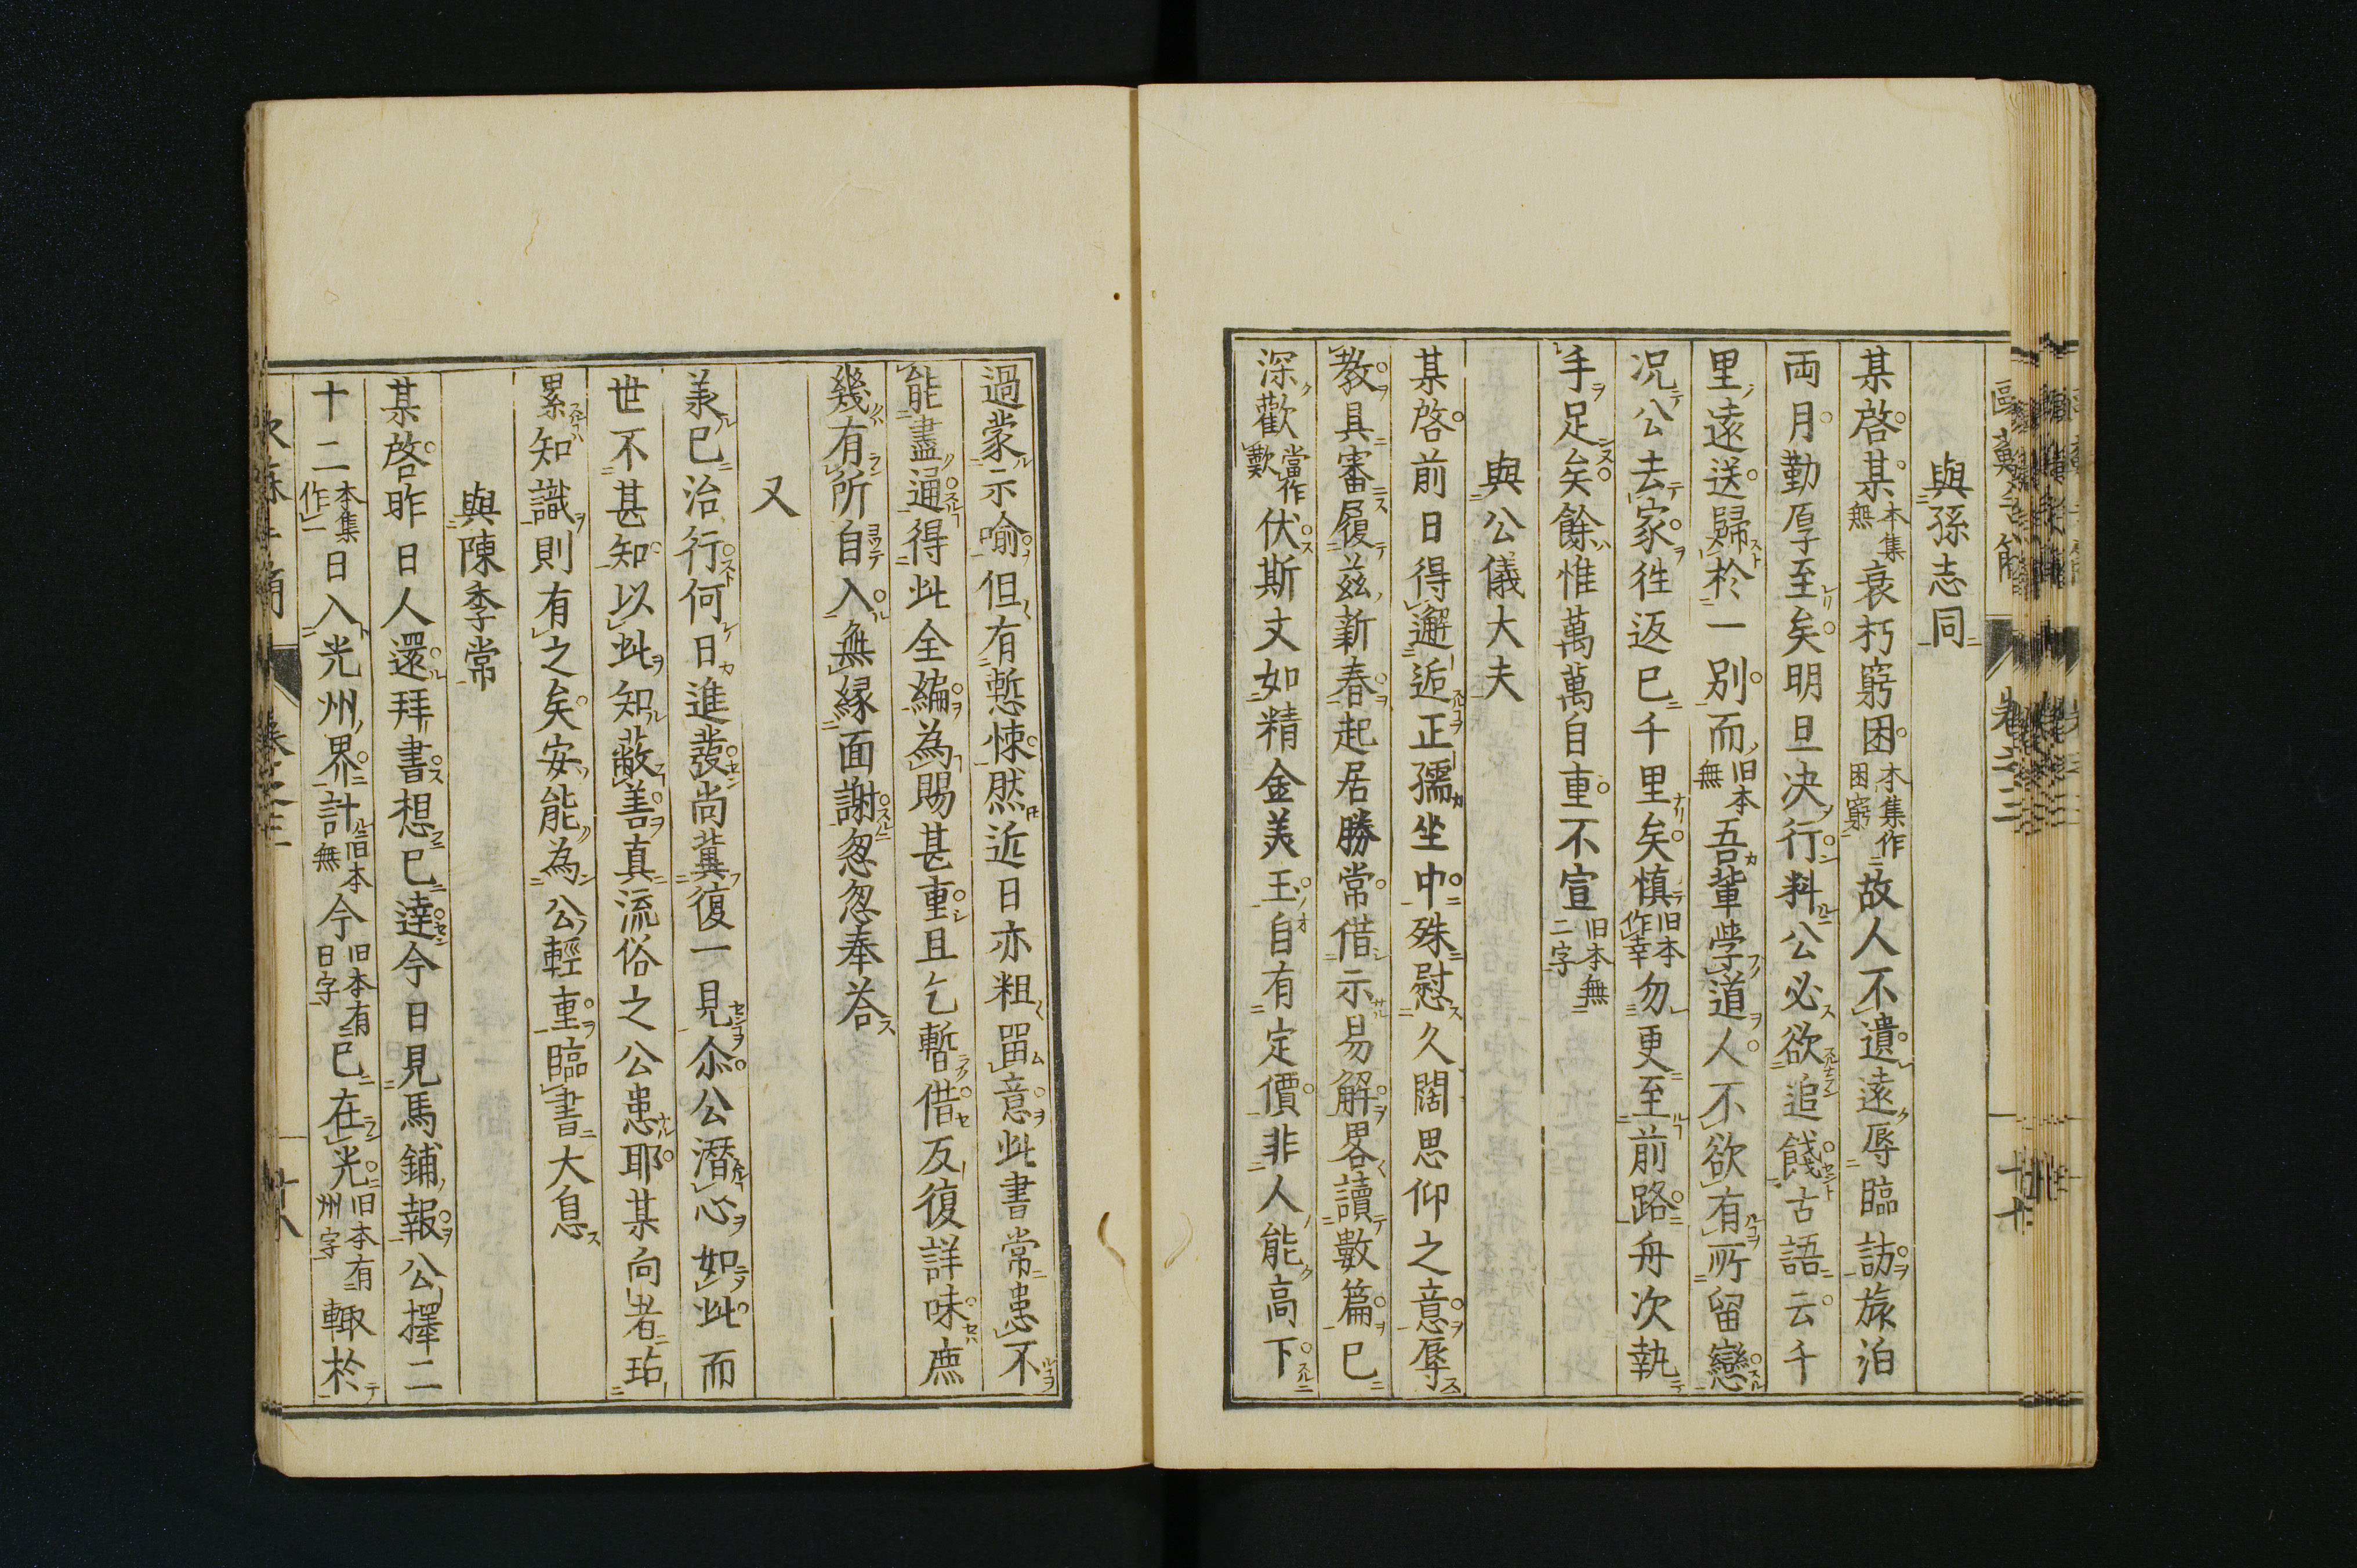 與孫志同
某啓某本集無衰朽窮困本集作困窮故人不遺遠辱臨訪旅泊
両月勤厚至矣明旦决行料公必欲追餞古語云千
里遠送歸於一別而旧本無吾輩学道人不欲有所留戀
况公去家往返已千里矣慎旧本作幸勿更至前路舟次執
手足矣餘惟萬萬自重不宣旧本無二字
與公儀大夫
某啓前日得邂逅正孺坐中殊慰久闊思仰之意辱
教具審履茲新春起居勝常借示易解畧讀數篇已
深歡當作歎伏斯文如精金美玉自有定價非人能高下
過蒙示喻但有慙悚然近日亦粗畱意此書常患不
能盡通得此全編為賜甚重且乞暫借反復詳味庶
幾有所自入無縁面謝忽忽奉荅
又
羨已治行何日進發尚冀復一見尒公潛心如此而
世不甚知以此知蔽善真流俗之公患耶某向者玷
累知識則有之矣安能為公輕重臨書大息
與陳季常
某啓昨日人還拜書想已達今日見馬鋪報公擇二
十二本集作一日入光州界計旧本無今旧本有日字已在光旧本有州字輙於